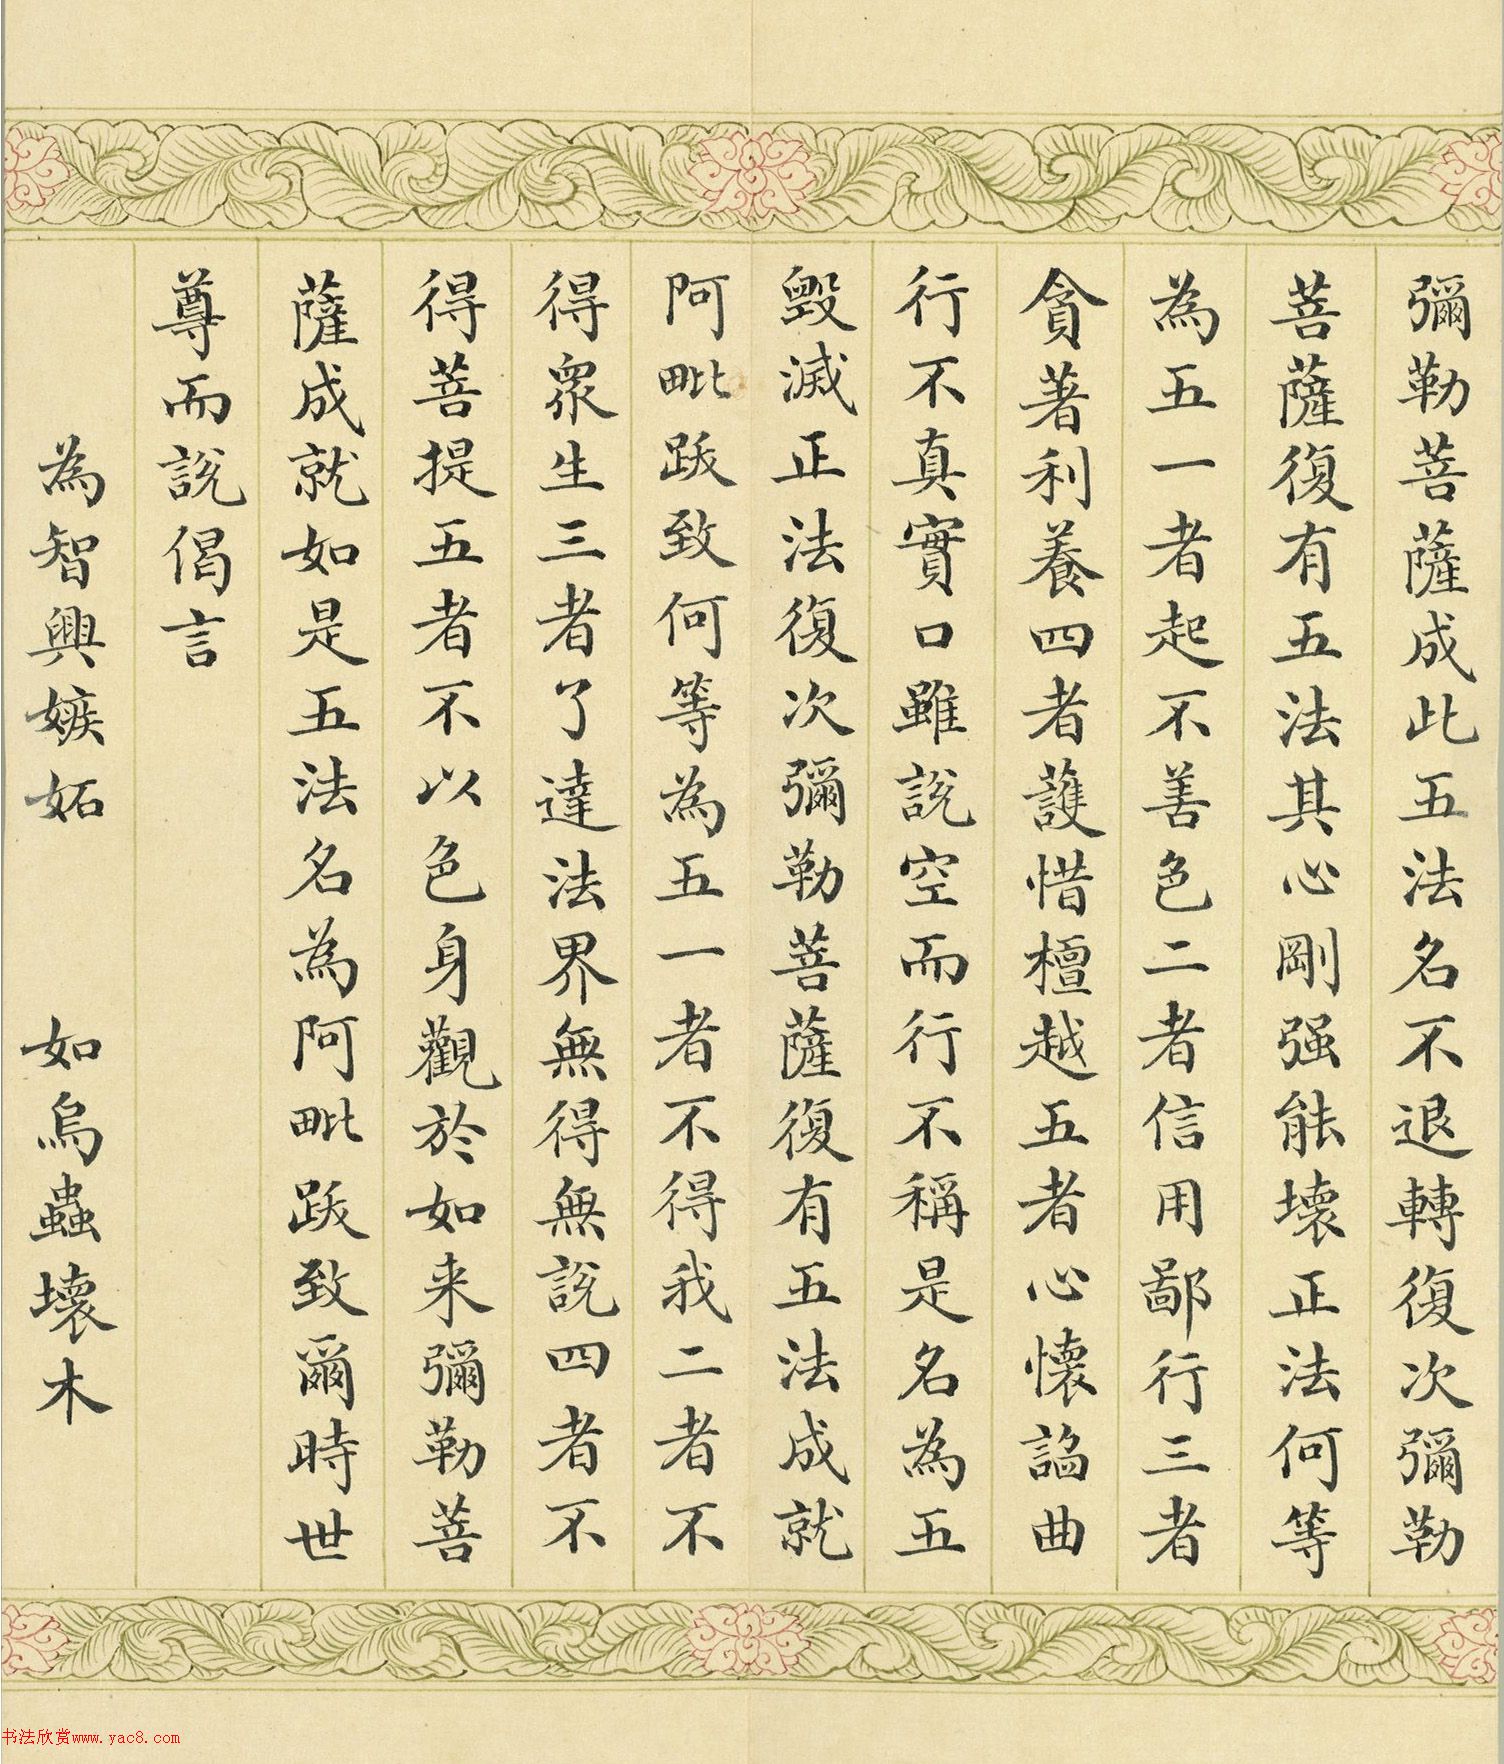 彌勒菩薩成此五法名不退轉復次彌勒
菩薩復有五法其心剛强能壞正法何等
為五一者起不善色二者信用鄙行三者
貪著利養四者護惜檀越五者心懷諂曲
行不真實口雖説空而行不稱是名為五
毀滅正法復次彌勒菩薩復有五法成就
阿毗跋致何等為五一者不得我二者不
得眾生三者了達法界無得無説四者不
得菩提五者不以色身觀於如来彌勒菩
薩成就如是五法名為阿毗跋致爾時世
尊而説偈言
為智興嫉妬 如烏蟲壞木
书法欣赏www.yac8.com